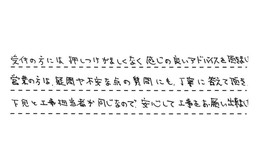 受付の方には、押しつけがましくなく感じの良いアドバイスを頂きまし
営業の方は、疑問や不安な点の質問にも、丁寧に教えて頂き
下見と工事担当者が同じなので、安心して工事をお願い出来まし